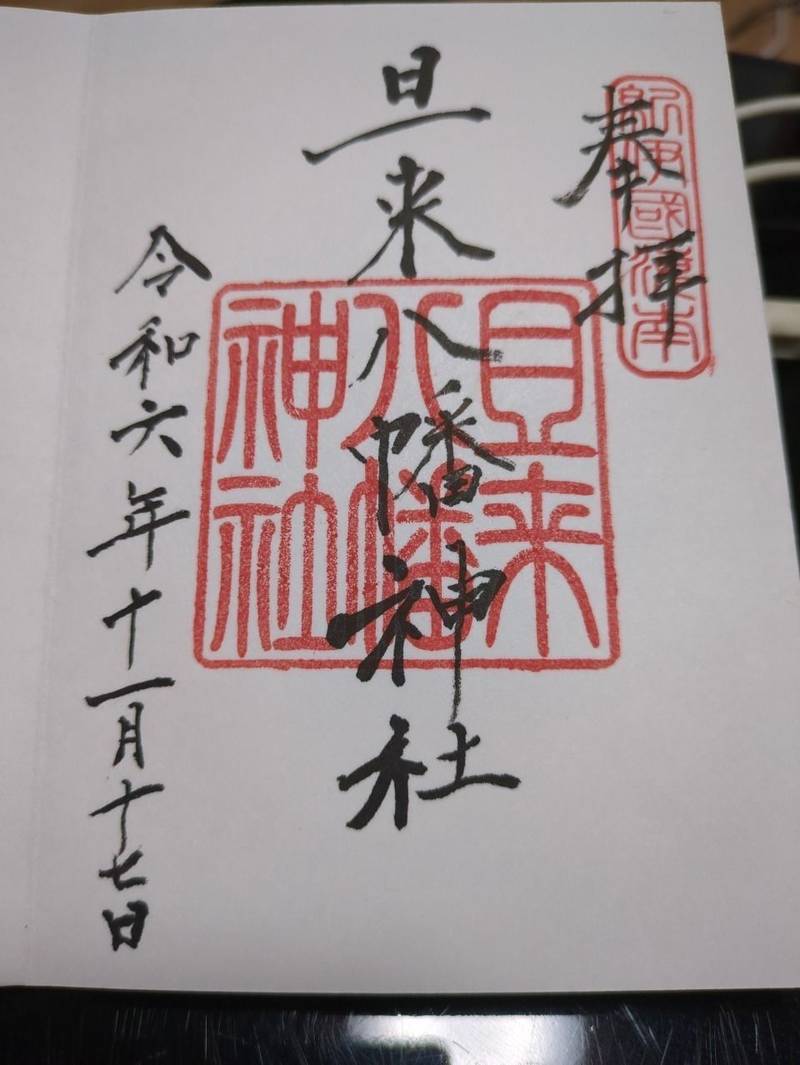 奉拝
紀伊國海南
旦来八幡神社
旦来
八幡
神社
令和六年十一月十七日